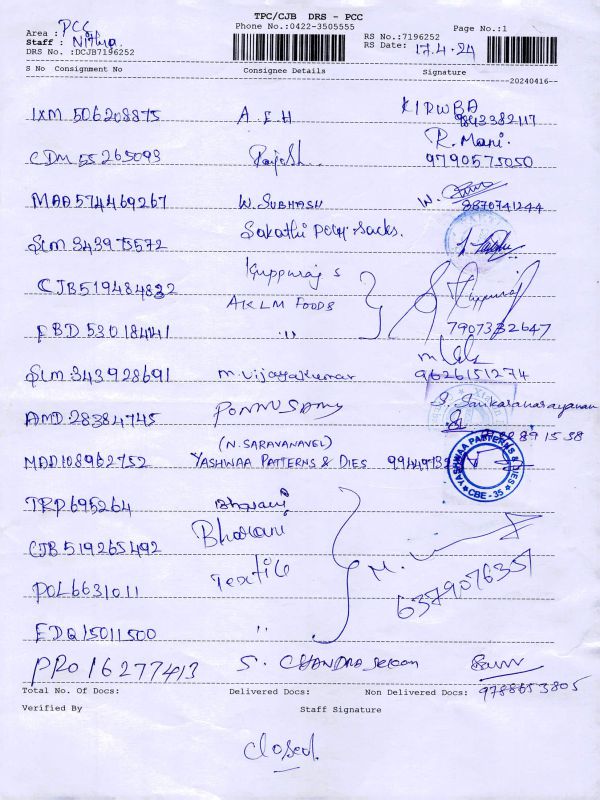 TPC/CJB DRS - PCC
Phone No.:0422-3505555
Page No.:1
Area : PCC
Staff : Nithya
DRS No. :DCJB7196252
RS No.:7196252
RS Date: 17.4.24
S No Consignment No Consignee Details Signature
20240416
IXM 506208875 A.E.H KIRWBA
9843382117
CDM 55265093 Rajesh R. Mani.
9790575050
MAA574469267 W. SUBHASH W.
8870741244
SLM 343975572 Sakathi Poly Sacks.
CJB519484832 Kuppuraj S
AKLM FOODS
FBD 53018441 "
7907332647
SLM 343928691 M. Vijayakumar 9626151274
AMD 28384745 PONNUSAMY S. Sankaranarayanan
(N. SARAVANAVEL)
MAA108962752 YASHWAA PATTERNS & DIES
YASHWAA PATTERNS & DIES
CBE - 35
TRP695264 Bharani
CJB 519265492 Bharani
POL6631011 Textile M.
6379076357
EDQ15011500 "
PRO16277413 S. CHANDRA Sekaran
Total No. Of Docs: Delivered Docs: Non Delivered Docs:
9788653805
Verified By Staff Signature
Closed.